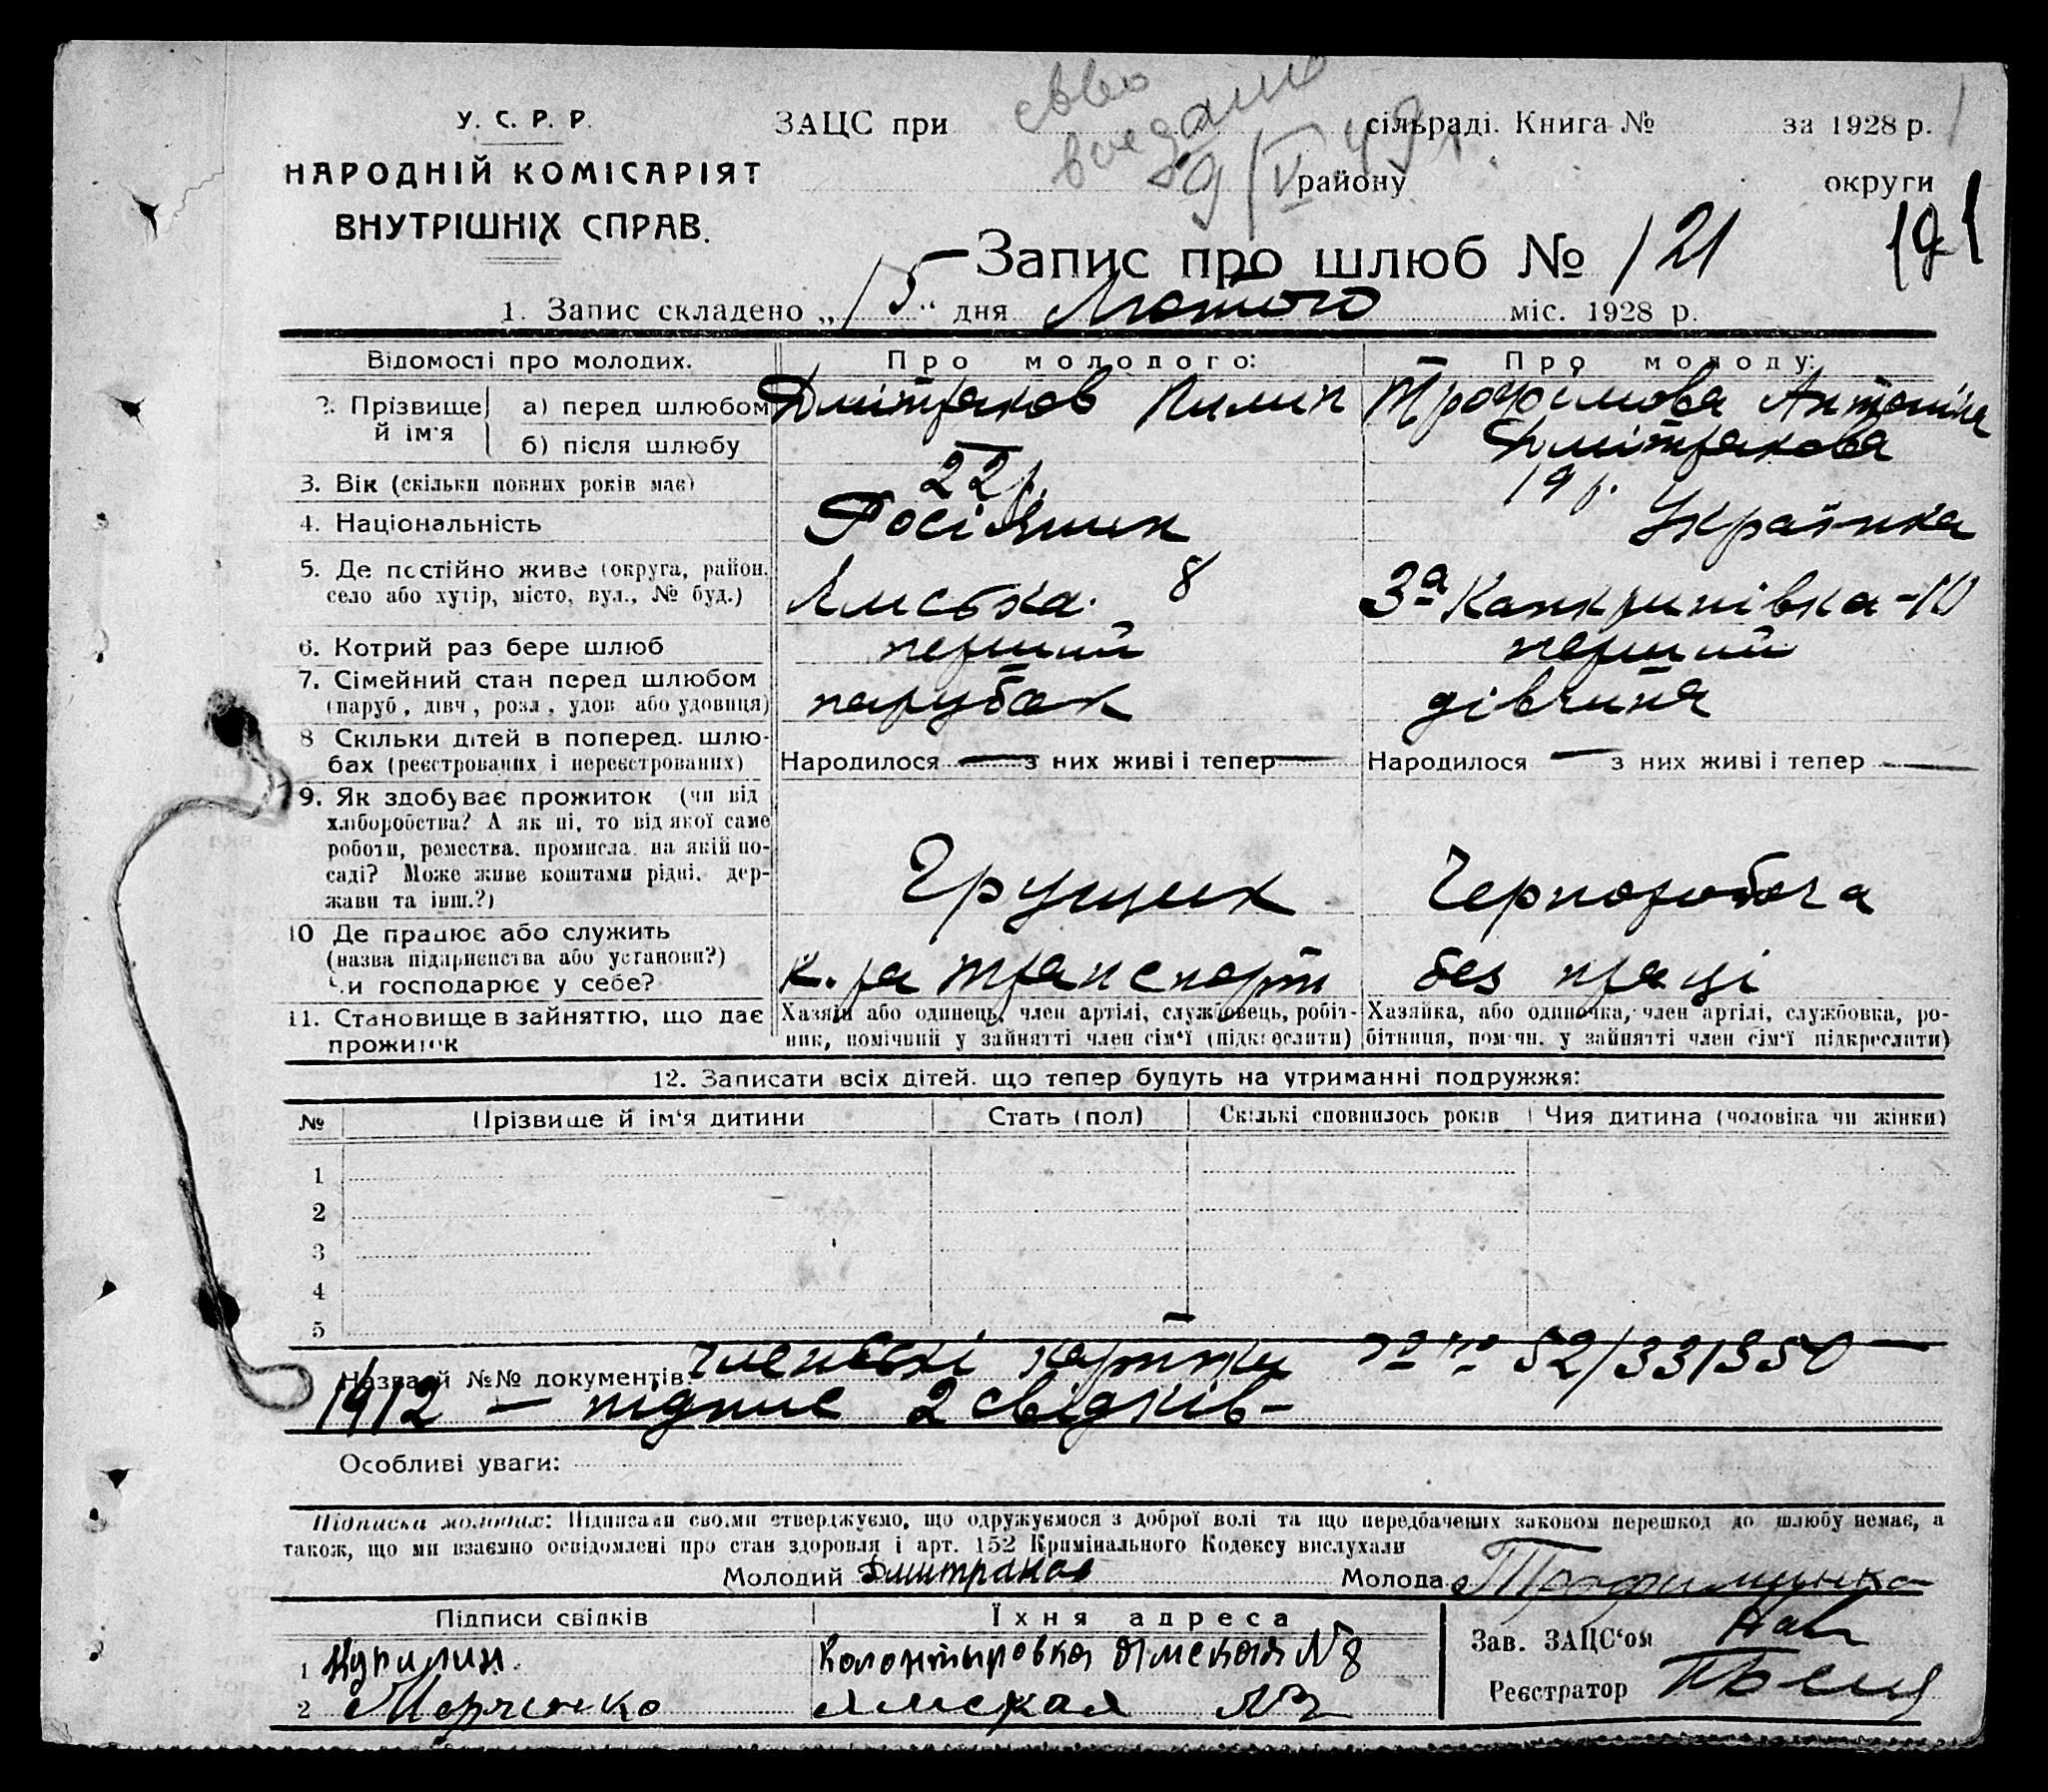 У. С. Р. Р.
НАРОДНІЙ КОМІСАРІЯТ
ВНУТРІШНІХ СПРАВ.
ЗАЦС при сільраді. Книга № за 1928 р.
району округи
Запис про шлюб № 121
1. Запис складено „15“ дня Лютого міс. 1928 р.
Відомості про молодих. Про молодого: Про молоду:
2. Прізвище й ім'я а) перед шлюбом Дмітраков Пилип Трофімова Антоніна
б) після шлюбу — Дмітракова
3. Вік (скільки повних років має) 22 р. 19 р.
4. Національність Росіянин Українка
5. Де постійно живе (округа, район, село або хутір, місто, вул., № буд.) Ямська 8 3а Канкринівка - 10
6. Котрий раз бере шлюб перший перший
7. Сімейний стан перед шлюбом (паруб., дівч., розл., удов. або удовиця) парубак дівчина
8 Скільки дітей в поперед. шлюбах (реєстрованих і нереєстрованих) Народилося — з них живі і тепер — Народилося — з них живі і тепер —
9. Як здобуває прожиток (чи від хліборобства? А як ні, то від якої саме роботи, ремества, промисла, на якій посаді? Може живе коштами рідні, держави та інш.?) Грущик Чернороботча
10 Де працює або служить (назва підприємства або установи?) Чи господарює у себе? к-ра транспорт без праці
11. Становище в зайняттю, що дає прожиток
Хазяїн або одинець, член артілі, службовець, робітник, помічний у зайнятті член сім'ї (підкреслити)
Хазяйка, або одиночка, член артілі, службовка, робітниця, помічн. у зайнятті член сім'ї підкреслити)
12. Записати всіх дітей, що тепер будуть на утриманні подружжя:
№ Прізвище й ім'я дитини Стать (пол) Скількі сповнилось років Чия дитина (чоловіка чи жінки)
1
2
3
4
5
Назва й №№ документів: членські картки №№ 52/331350 —
1912 — підпис 2 свідків —
Особливі уваги:
Підписка молодих: Підписами своїми стверджуємо, що одружуємося з доброї волі та що передбачених законом перешкод до шлюбу немає, а
також, що ми взаємно освідомлені про стан здоровля і арт. 152 Кримінального Кодексу вислухали
Молодий Дмитраков Молода
Підписи свідків Їхня адреса Зав. ЗАЦС'ом
1 Ямская № 8
2 Марченко Ямская №
Реєстратор